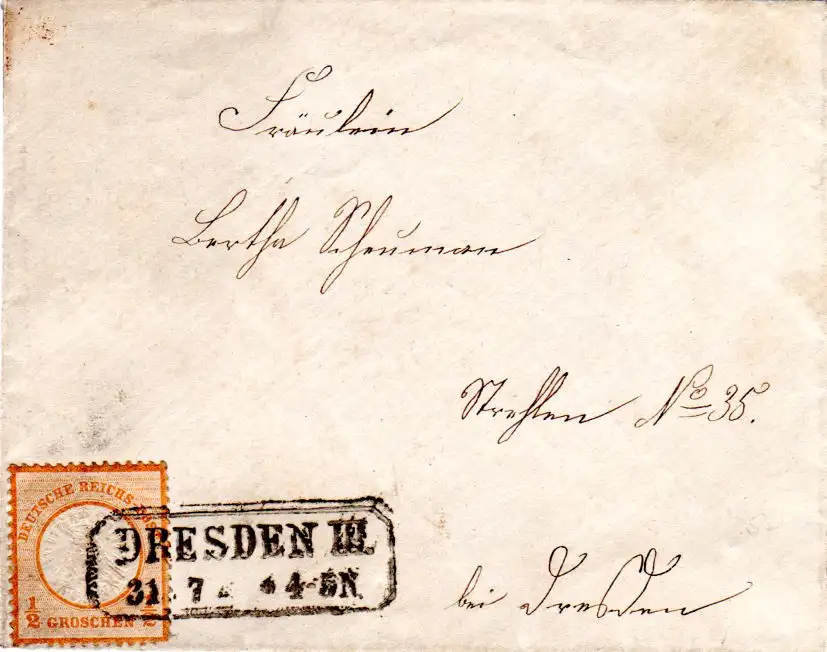 Fräulein
Bertha Scheuman
Strehlen No 35.
bei Dresden
DEUTSCHE REICHS-POST
DRESDEN III.
31 7 4-5N
1/2 GROSCHEN 1/2